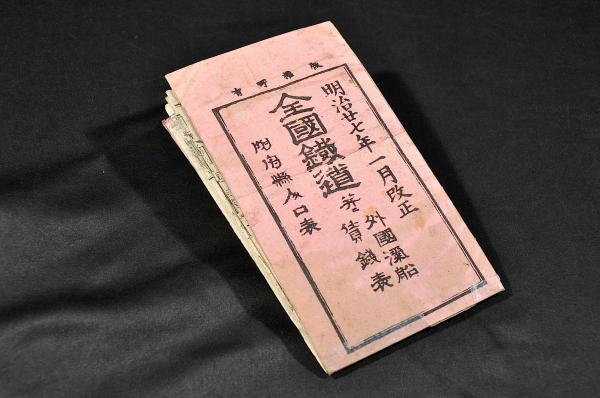 版權所有
明治廿七年一月改正
全國鐵道
外國滊船
並賃錢表
附府縣人口表